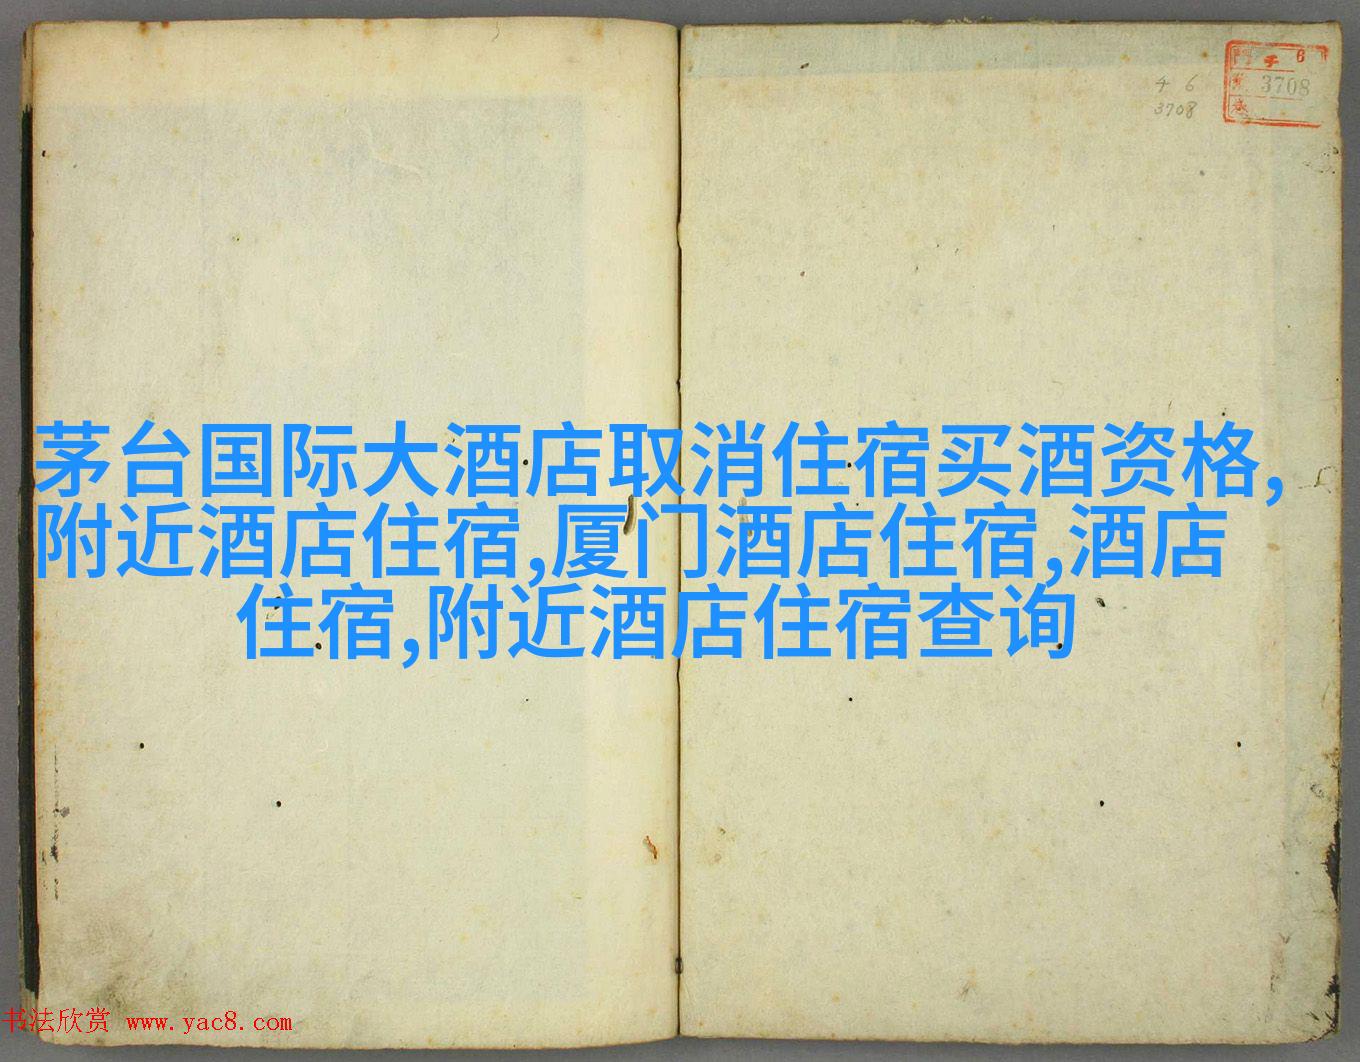 4 6
3708
門 チ 6
3708
茅台国际大酒店取消住宿买酒资格,
附近酒店住宿,厦门酒店住宿,酒店
住宿,附近酒店住宿查询
书法欣赏 www.yac8.com